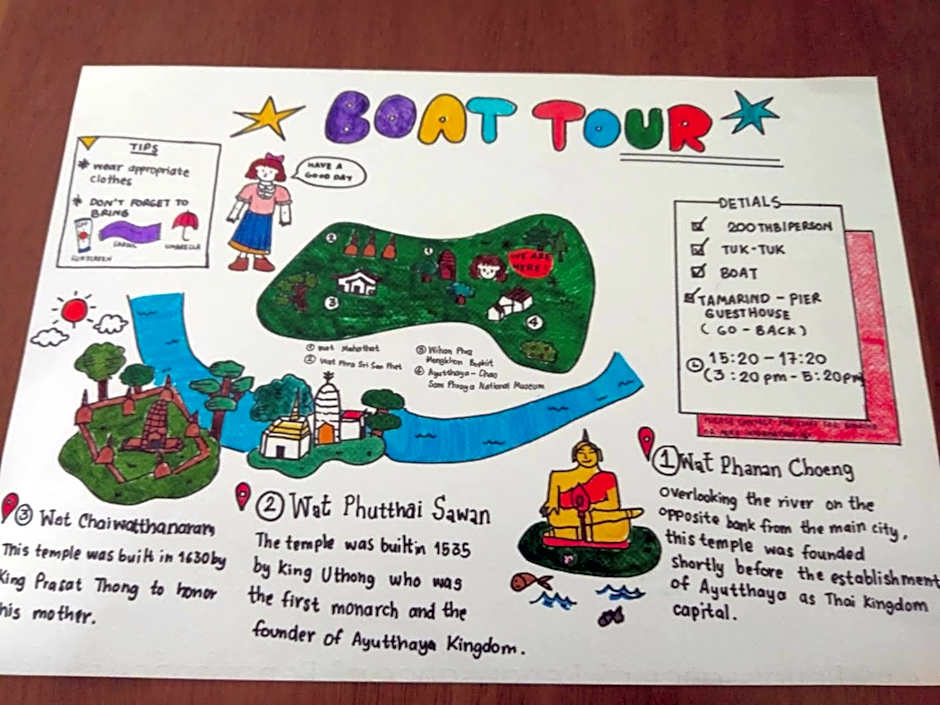 BOAT TOUR
TIPS
* wear appropriate
clothes
* DON'T FORGET TO
BRING
SUNSCREEN
UMBRELLA
HAVE A
GOOD DAY
DETIALS
200THB/PERSON
TUK-TUK
BOAT
TAMARIND - PIER
GUESTHOUSE
(GO - BACK)
15:20 - 17:20
(3:20 pm - 5:20pm
2
1
WE ARE
HERE!
3
4
① Wat Mahathat
② Wat Phra Sri San Phet
③ Wihan Phra
Mongkhon Bophit
④ Ayutthaya - Chao
Sam Phraya National Museum
① Wat Phanan Choeng
Overlooking the river on the
opposite bank from the main city,
this temple was founded
shortly before the establishment
of Ayutthaya as Thai Kingdom
capital.
② Wat Phutthai Sawan
The temple was built in 1535
by King Uthong who was
the first monarch and the
founder of Ayutthaya Kingdom.
③ Wat Chaiwatthanaram
This temple was built in 1630 by
King Prasat Thong to honor
his mother.